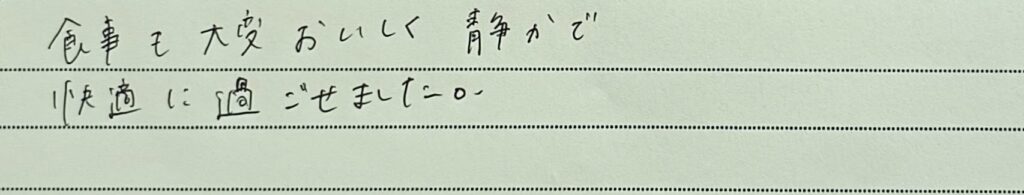 食事も大変おいしく静かで
快適に過ごせました。